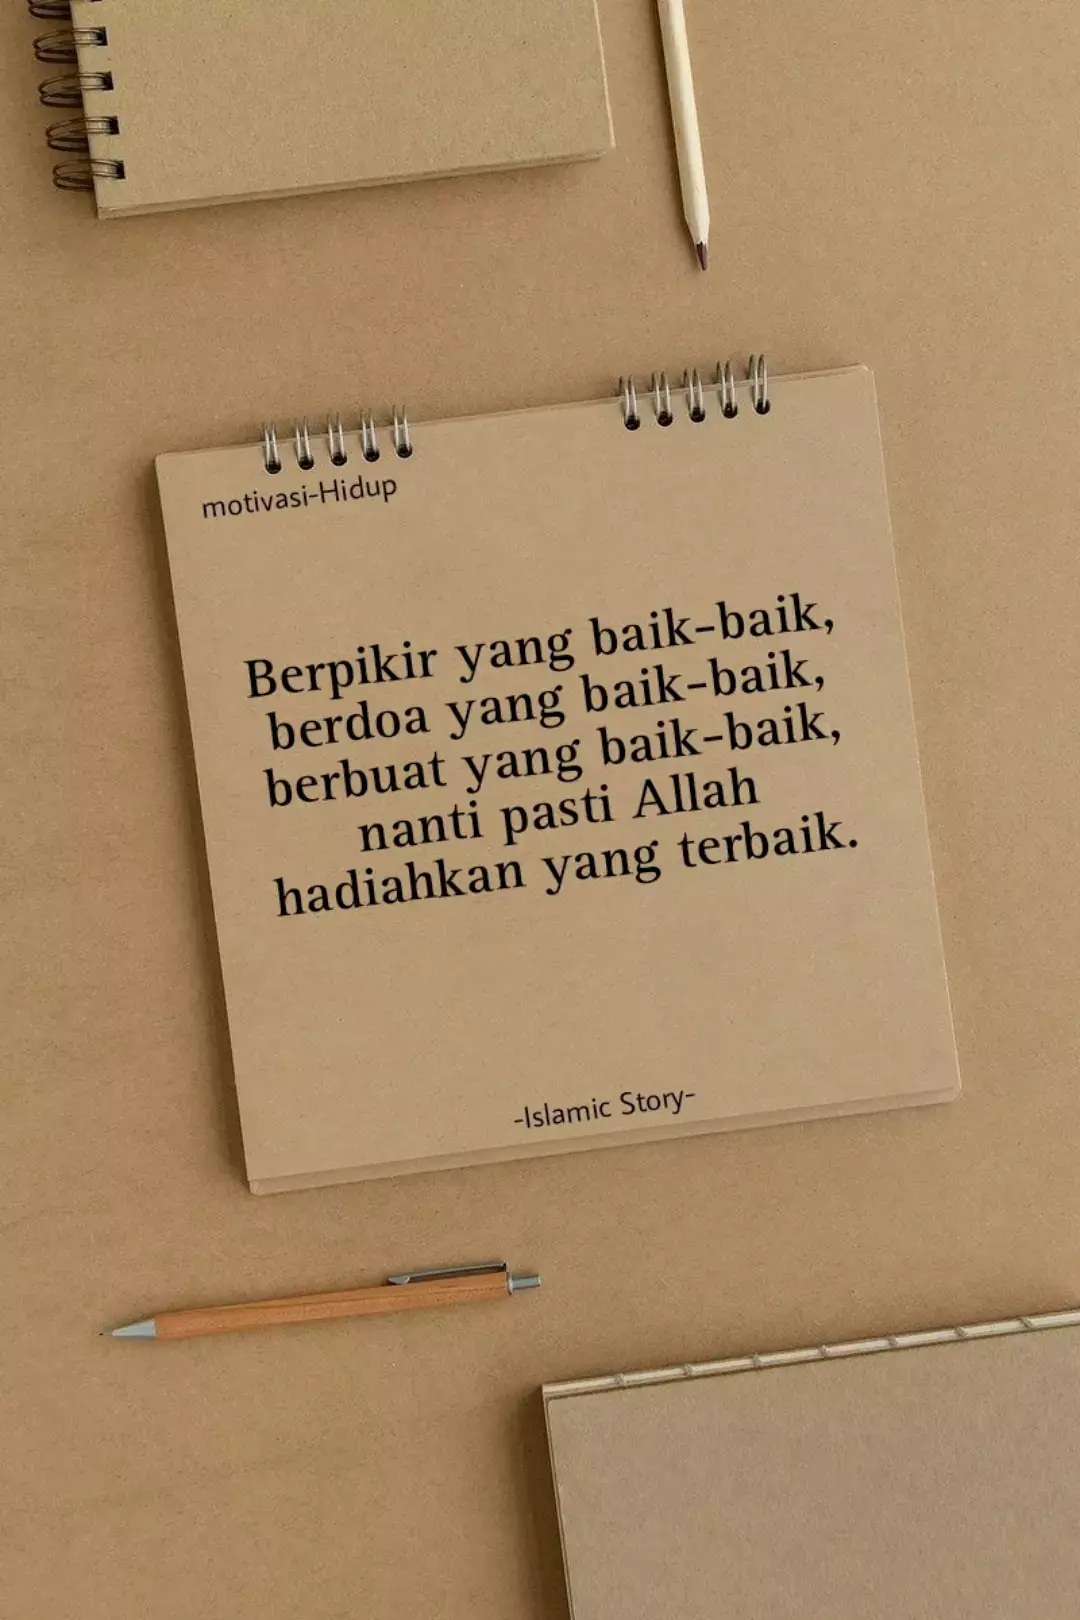 motivasi-Hidup
Berpikir yang baik-baik,
berdoa yang baik-baik,
berbuat yang baik-baik,
nanti pasti Allah
hadiahkan yang terbaik.
-Islamic Story-